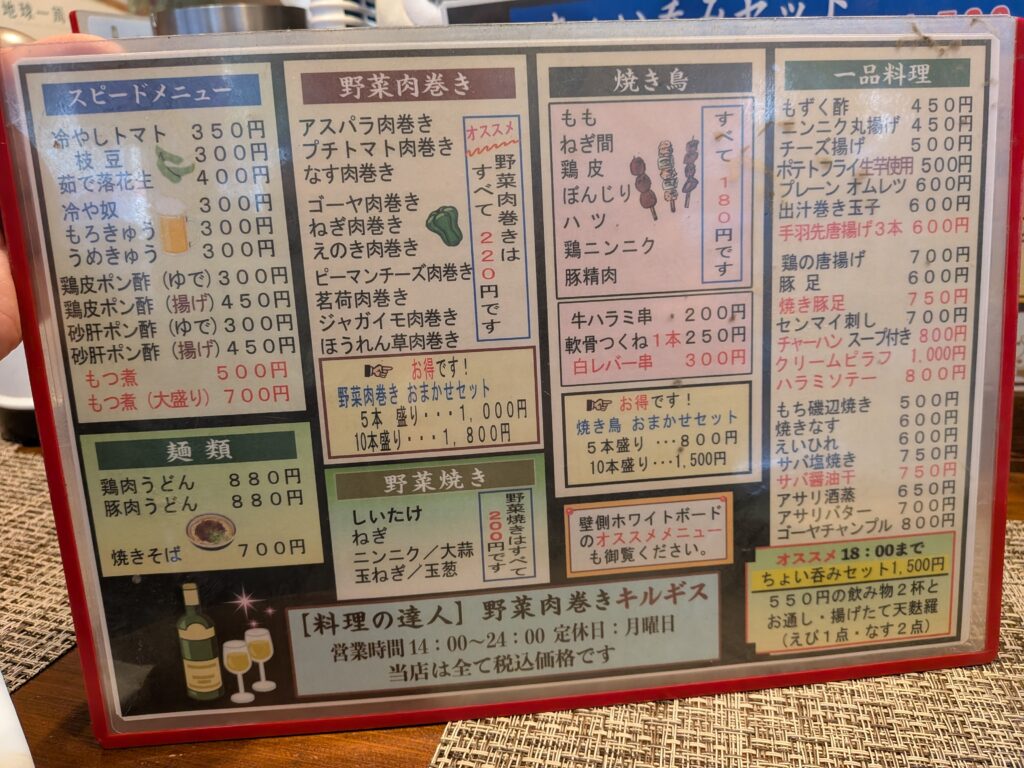 地球一周
ちょい呑みセット
スピードメニュー
冷やしトマト 350円
枝豆 300円
茹で落花生 400円
冷や奴 300円
もろきゅう 300円
うめきゅう 300円
鶏皮ポン酢(ゆで)300円
鶏皮ポン酢(揚げ)450円
砂肝ポン酢(ゆで)300円
砂肝ポン酢(揚げ)450円
もつ煮 500円
もつ煮(大盛り)700円
麺類
鶏肉うどん 880円
豚肉うどん 880円
焼きそば 700円
野菜肉巻き
アスパラ肉巻き
プチトマト肉巻き
なす肉巻き
ゴーヤ肉巻き
ねぎ肉巻き
えのき肉巻き
ピーマンチーズ肉巻き
茗荷肉巻き
ジャガイモ肉巻き
ほうれん草肉巻き
オススメ
野菜肉巻きは
すべて 220円です
お得です!
野菜肉巻き おまかせセット
5本 盛り・・・1,000円
10本盛り・・・1,800円
野菜焼き
しいたけ
ねぎ
ニンニク/大蒜
玉ねぎ/玉葱
野菜焼きはすべて
200円です
焼き鳥
もも
ねぎ間
鶏皮
ぼんじり
ハツ
鶏ニンニク
豚精肉
すべて 180円です
牛ハラミ串 ・200円
軟骨つくね1本250円
白レバー串 300円
お得です!
焼き鳥 おまかせセット
5本盛り ・・・800円
10本盛り・・・1,500円
壁側ホワイトボード
のオススメメニュー
も御覧ください。
一品料理
もずく酢 450円
ニンニク丸揚げ 450円
チーズ揚げ 500円
ポテトフライ生芋使用 500円
プレーン オムレツ 600円
出汁巻き玉子 600円
手羽先唐揚げ3本 600円
鶏の唐揚げ 700円
豚足 600円
焼き豚足 750円
センマイ刺し 700円
チャーハン スープ付き 800円
クリームピラフ 1,000円
ハラミソテー 800円
もち磯辺焼き 500円
焼きなす 600円
えいひれ 600円
サバ塩焼き 750円
サバ醤油干 750円
アサリ酒蒸 650円
アサリバター 700円
ゴーヤチャンプル 800円
オススメ 18:00まで
ちょい呑みセット1,500円
550円の飲み物2杯と
お通し・揚げたて天麩羅
(えび1点・なす2点)
【料理の達人】野菜肉巻きキルギス
営業時間14:00~24:00 定休日:月曜日
当店は全て税込価格です